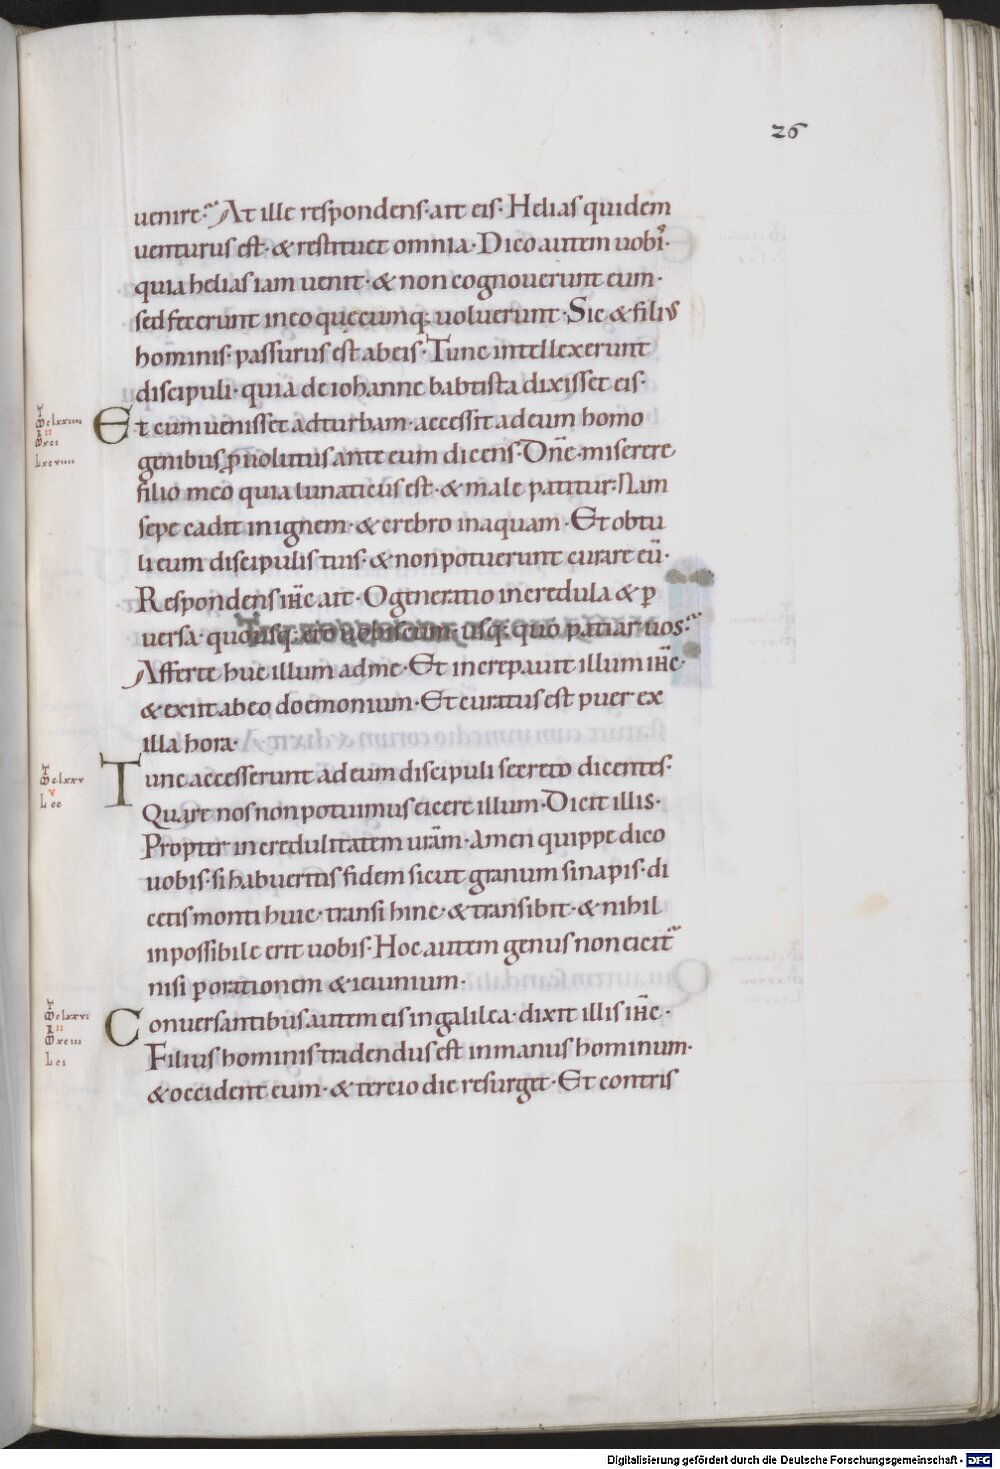 26
uenire· At ille respondens· ait eis· Helias quidem
uenturus est· & restituet omnia· Dico autem uobis·
quia helias iam uenit· & non cognouerunt eum·
sed fecerunt in eo quęcumq; uoluerunt· Sic & filius
hominis· passurus est ab eis· Tunc intellexerunt
discipuli· quia de iohanne babtista dixisset eis·
Et cum uenisset ad turbam· accessit ad eum homo
genibus ꝓuolutus ante eum dicens· Dn̄e· miserere
filio meo quia lunaticus est· & male patitur· Nam
sepe cadit in ignem· & crebro in aquam· Et obtu
li eum discipulis tuis· & non potuerunt curare eū·
Respondens ih̄c ait· O generatio incredula & ꝑ
uersa· quousq; ero uobiscum· usq; quo patiar uos·
Afferte huc illum ad me· Et increpauit illum ih̄c·
& exiit ab eo doemonium· Et curatus est puer ex
illa hora·
Tunc accesserunt ad eum discipuli secreto dicentes·
Quare nos non potuimus eicere illum· Dicit illis·
Propter incredulitatem urām· Amen quippe dico
uobis· si habueritis fidem sicut granum sinapis· di
cetis monti huic· transi hinc· & transibit· & nihil
inpossibile erit uobis· Hoc autem genus non eicit᷑
nisi ꝑ orationem & ieiunium·
Conuersantibus autem eis in galilea· dixit illis ih̄c·
Filius hominis tradendus est in manus hominum·
& occident eum· & tercio die resurget· Et contris
Digitalisierung gefördert durch die Deutsche Forschungsgemeinschaft - DFG